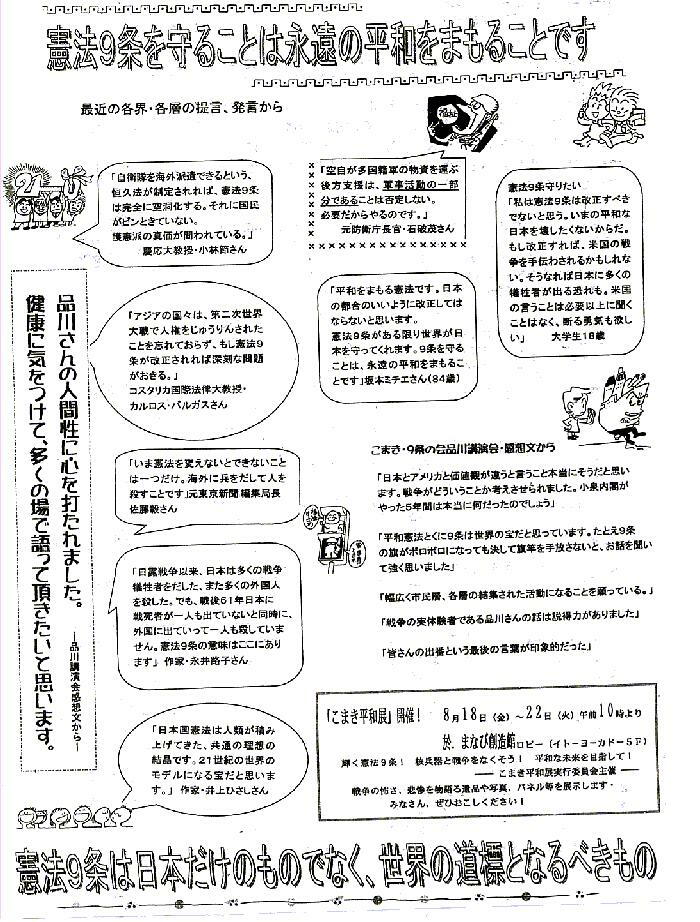 憲法9条を守ることは永遠の平和をまもることです
最近の各界・各層の提言、発言から
「自衛隊を海外派遣できるという、
恒久法が制定されれば、憲法9条
は完全に空洞化する。それに国民
がピンときていない。
護憲派の真価が問われている。」
慶応大教授・小林節さん
「空自が多国籍軍の物資を運ぶ
後方支援は、軍事活動の一部
分であることは否定しない。
必要だからやるのです。」
元防衛庁長官・石破茂さん
憲法9条守りたい
「私は憲法9条は改正すべき
でないと思う。いまの平和な
日本を壊したくないからだ。
もし改正すれば、米国の戦
争を手伝わされるかもしれな
い。そうなれば日本に多くの
犠牲者が出る恐れも。米国
の言うことは必要以上に聞く
ことはなく、断る勇気も欲し
い」 大学生18歳
「アジアの国々は、第二次世界
大戦で人権をじゅうりんされた
ことを忘れておらず、もし憲法9
条が改正されれば深刻な問題
がおきる。」
コスタリカ国際法律大教授・
カルロス・バルガスさん
「平和をまもる憲法です。日本
の都合のいいように改正しては
ならないと思います。
憲法9条がある限り世界が日
本を守ってくれます。9条を守る
ことは、永遠の平和をまもるこ
とです」坂本ミチエさん(84歳)
品川さんの人間性に心を打たれました。
健康に気をつけて、多くの場で語って頂きたいと思います。
―品川講演会感想文から―
「いま憲法を変えないとできないこと
は一つだけ。海外に兵をだして人を
殺すことです」元東京新聞編集局長
佐藤毅さん
「日露戦争以来、日本は多くの戦争
犠牲者をだした、また多くの外国人
を殺した。でも、戦後61年日本に
戦死者が一人も出ていないと同時に、
外国に出ていって一人も殺していませ
ん。憲法9条の意味はここにあり
ます」 作家・永井路子さん
「日本国憲法は人類が積み
上げてきた、共通の理想の
結晶です。21世紀の世界の
モデルになる宝だと思いま
す。」 作家・井上ひさしさん
こまき・9条の会品川講演会・感想文から
「日本とアメリカと価値観が違うと言うこと本当にそうだと思い
ます。戦争がどういうことか考えさせられました。小泉内閣が
やった5年間は本当に何だったのでしょう」
「平和憲法とくに9条は世界の宝だと思っています。たとえ9条
の旗がボロボロになっても決して旗竿を手放さないと、お話を聞い
て強く思いました」
「幅広く市民層、各層の結集された活動になることを願っている。」
「戦争の実体験者である品川さんの話は説得力がありました」
「皆さんの出番という最後の言葉が印象的だった」
「こまき平和展」開催! 8月18日(金)~22日(火)午前10時より
於、まなび創造館ロビー(イトーヨーカドー5F)
輝く憲法9条! 核兵器と戦争をなくそう! 平和な未来を目指して!
― こまき平和展実行委員会主催 ―
戦争の怖さ、悲惨を物語る遺品や写真、パネル等を展示します・
みなさん、ぜひおこしください!
憲法9条は日本だけのものでなく、世界の道標となるべきもの